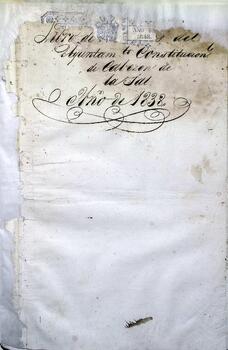 Libro de del
Ayuntam.to Constitucion.l
de Cabezon de
la Sal
Año de 1898